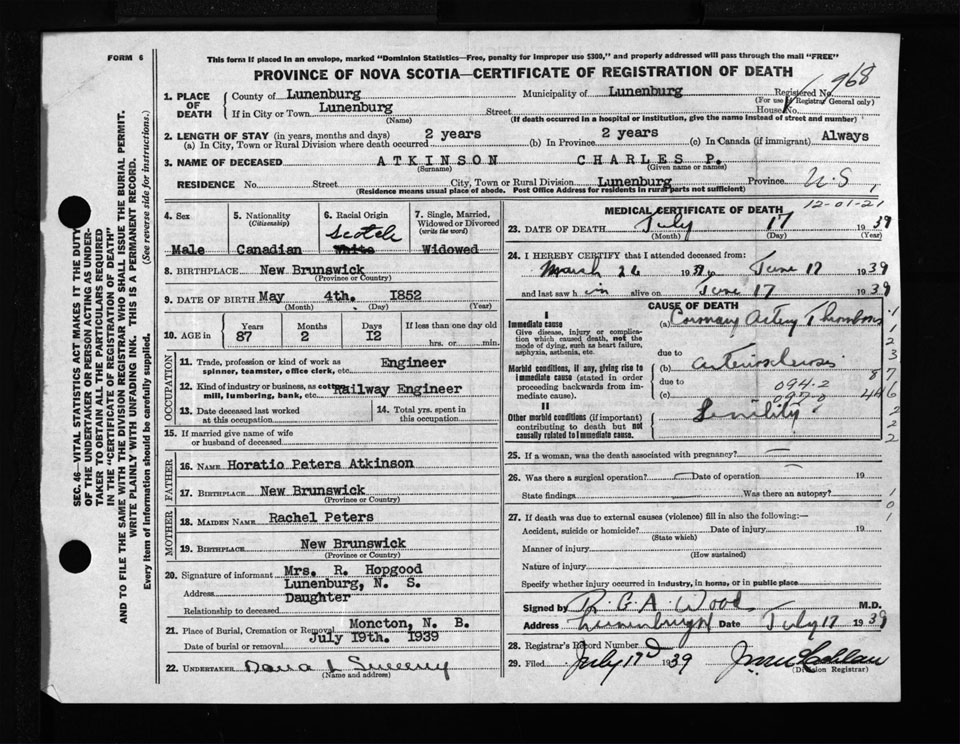 FORM 6
This form if placed in an envelope, marked "Dominion Statistics—Free, penalty for improper use $300," and properly addressed will pass through the mail "FREE"
PROVINCE OF NOVA SCOTIA—CERTIFICATE OF REGISTRATION OF DEATH
968
1. PLACE OF DEATH { County of Lunenburg Municipality of Lunenburg Registered No.
(For use of Registrar General only)
If in City or Town Lunenburg Street House No.
(Name) (If death occurred in a hospital or institution, give the name instead of street and number)
2. LENGTH OF STAY (in years, months and days) 2 years 2 years Always
(a) In City, Town or Rural Division where death occurred (b) In Province (c) In Canada (if immigrant)
3. NAME OF DECEASED ATKINSON CHARLES P.
(Surname) (Given name or names)
RESIDENCE No. Street City, Town or Rural Division Lunenburg Province N.S.
(Residence means usual place of abode. Post Office Address for residents in rural parts not sufficient)
4. Sex
Male
5. Nationality
(Citizenship)
Canadian
6. Racial Origin
Scotch
White
7. Single, Married, Widowed or Divorced
(write the word)
Widowed
8. BIRTHPLACE New Brunswick
(Province or Country)
9. DATE OF BIRTH May 4th. 1852
(Month) (Day) (Year)
10. AGE in Years Months Days If less than one day old
87 2 12 hrs. or min.
OCCUPATION
11. Trade, profession or kind of work as Engineer
spinner, teamster, office clerk, etc.
12. Kind of industry or business, as cotton Railway Engineer
mill, lumbering, bank, etc.
13. Date deceased last worked at this occupation
14. Total yrs. spent in this occupation
15. If married give name of wife or husband of deceased
FATHER
16. NAME Horatio Peters Atkinson
17. BIRTHPLACE New Brunswick
(Province or Country)
MOTHER
18. MAIDEN NAME Rachel Peters
19. BIRTHPLACE New Brunswick
(Province or Country)
20. Signature of informant Mrs. R. Hopgood
Address Lunenburg, N. S.
Relationship to deceased Daughter
21. Place of Burial, Cremation or Removal Moncton, N. B.
Date of burial or removal July 19th. 1939
22. UNDERTAKER Dana L Sweeny
(Name and address)
12-01-21
MEDICAL CERTIFICATE OF DEATH
23. DATE OF DEATH July 17 1939
(Month) (Day) (Year)
24. I HEREBY CERTIFY that I attended deceased from:
March 26 193 to June 17 1939
and last saw him alive on June 17 1939
CAUSE OF DEATH
I
Immediate cause
Give disease, injury or complication which caused death, not the mode of dying, such as heart failure, asphyxia, asthenia, etc.
(a) Coronary Artery Thrombosis
due to
Morbid conditions, if any, giving rise to immediate cause (stated in order proceeding backwards from immediate cause).
(b) arteriosclerosis
due to 094-2
(c) 097-0
II
Other morbid conditions (if important) contributing to death but not causally related to immediate cause.
Senility
25. If a woman, was the death associated with pregnancy?
26. Was there a surgical operation? Date of operation 19
State findings Was there an autopsy?
27. If death was due to external causes (violence) fill in also the following:—
Accident, suicide or homicide? Date of injury 19
(State which)
Manner of injury
(How sustained)
Nature of injury
Specify whether injury occurred in industry, in home, or in public place
Signed by R. G. A. Wood M.D.
Address Lunenburg Date July 17 1939
28. Registrar's Record Number
29. Filed July 17 1939
(Division Registrar)
SEC. 46—VITAL STATISTICS ACT MAKES IT THE DUTY
OF THE UNDERTAKER OR PERSON ACTING AS UNDER-
TAKER TO OBTAIN ALL THE PARTICULARS REQUIRED
IN THE "CERTIFICATE OF REGISTRATION OF DEATH"
AND TO FILE THE SAME WITH THE DIVISION REGISTRAR WHO SHALL ISSUE THE BURIAL PERMIT.
WRITE PLAINLY WITH UNFADING INK. THIS IS A PERMANENT RECORD.
Every item of information should be carefully supplied. (See reverse side for instructions.)